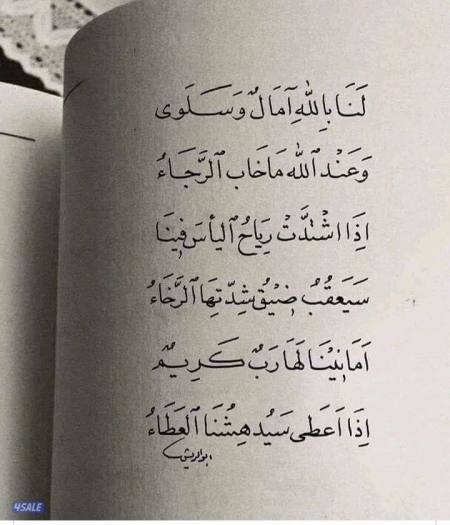 لَنَا بِاللّٰهِ آمَالٌ وَسَلوَى
وَعَنْد ٱللّٰه مَاخَاب ٱلرَّجَاءُ
اِذَا اشْتدَّتْ رِيَاحُ ٱليأسَ فِينَا
سَيَعقُبُ ضِيْقِ شِدّتِهَا ٱلرَّخَاءُ
اَمَانِيْنَا لَهَا رَبٌ كَرِيمٌ
اِذَا اَعطَى سَيُدهِشُنَا ٱلعَطَاءُ
4SALE